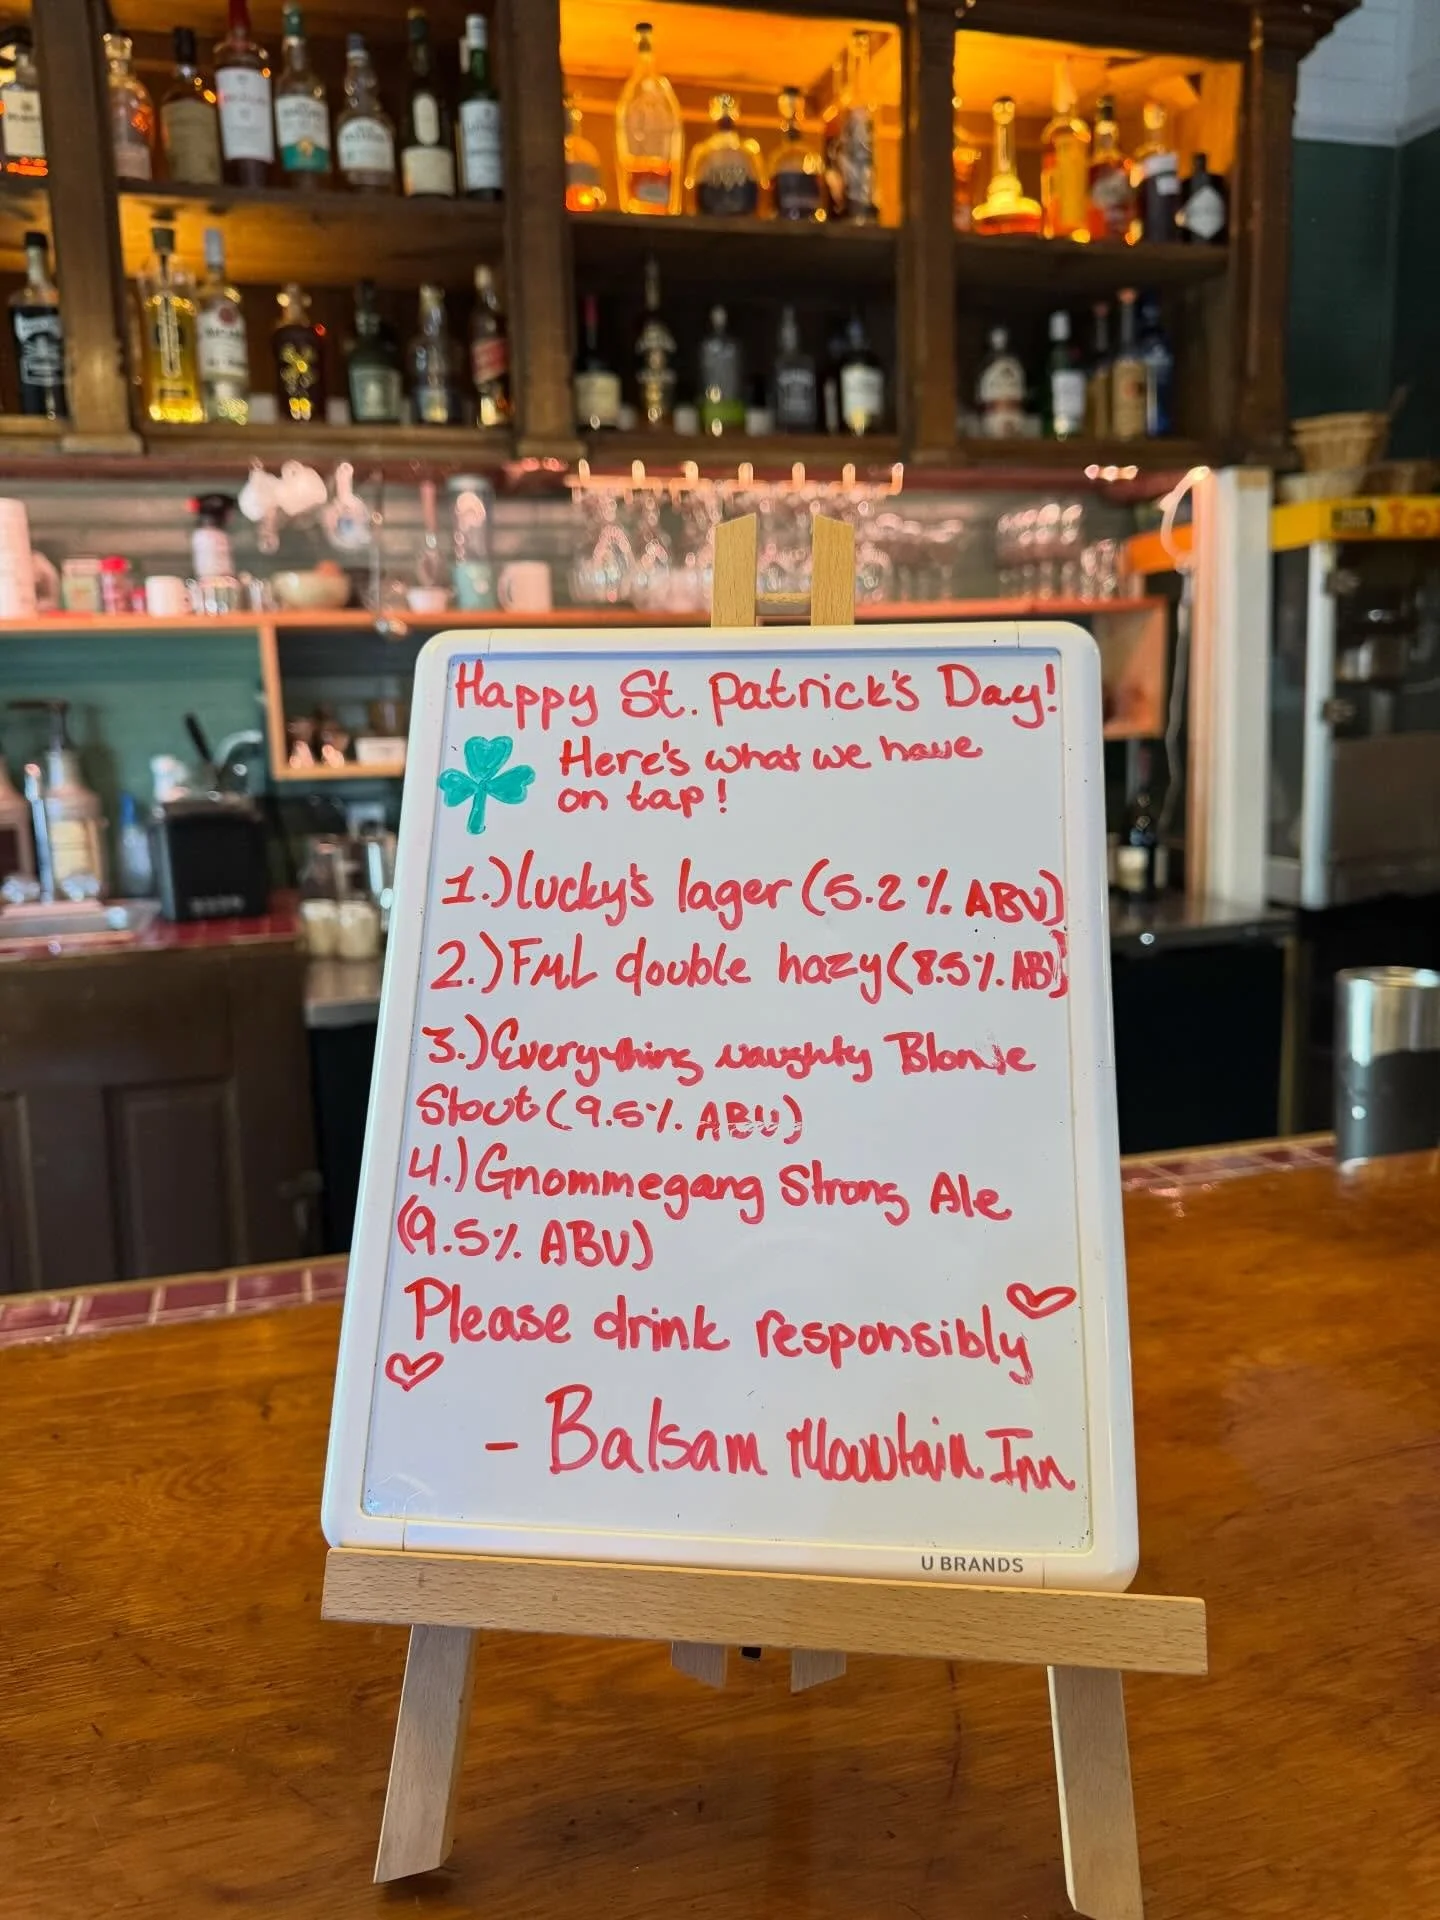 Happy St. Patrick's Day!
Here's what we have
on tap!
1.) Lucky's lager (5.2% ABV)
2.) FML double hazy (8.5% ABV)
3.) Everything naughty Blonde
Stout (9.5% ABV)
4.) Gnommegang Strong Ale
(9.5% ABV)
Please drink responsibly
- Balsam Mountain Inn
U BRANDS